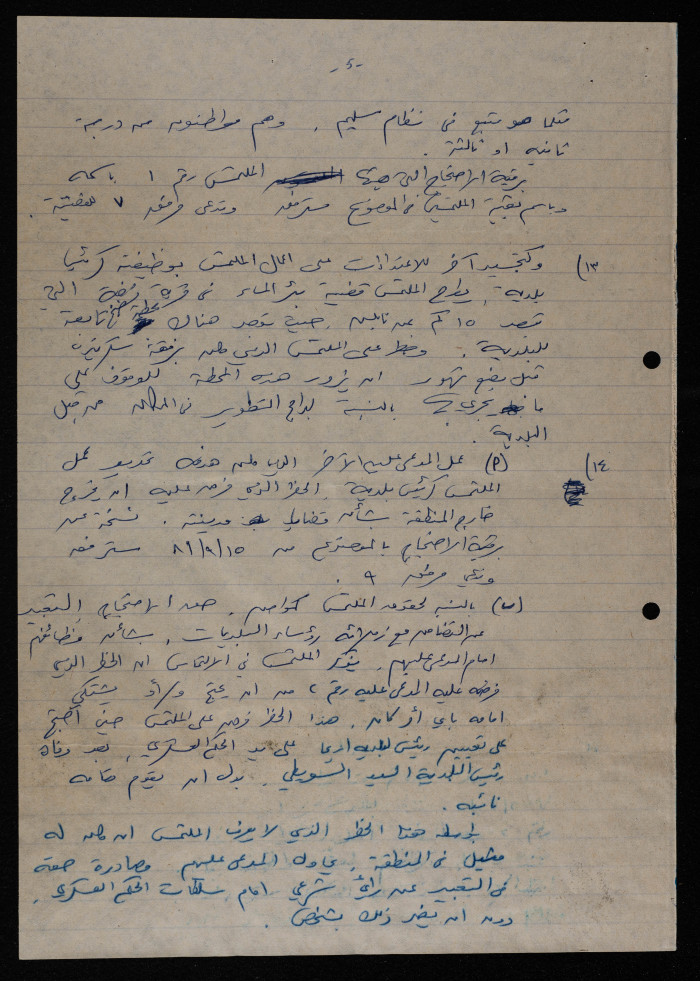 -٥-
مثلما هو متبع في نظام سليم، وهم مواطنون من درجة
ثانية او ثالثة.
برقية الاحتجاج التي الملتمس رقم ١ باسمه
وباسم بقية الملتمسين في الموضوع مسترفقة وتدعى مرفق ٧ للعضية.
١٣) وكتجسيد آخر للاعتداءات على اعمال الملتمس بوظيفته كرئيس
بلدية، يطرح الملتمس قضية بئر الماء في قرية التي
تبعد ١٥ كم عن نابلس، حيث توجد هناك محطة ضخ تابعة
للبلدية. على الملتمس الذي كان برفقة سكرتيره
قبل بضع شهور ان يزور هذه المحطة للوقوف على
ما يجري بالنسبة لبرامج التطوير في المكان من قبل
البلدية.
١٤) (أ) عمل المدعى عليه الآخر الذي كان هدفه تحديد عمل
الملتمس كرئيس بلدية، الحظر الذي فرض عليه ان يخرج
خارج المنطقة بشأن قضايا مدينته. نسخة عن
برقية الاحتجاج بالموضوع من ٨١/٩/١٥ مسترفقة
وتدعى مرفق ٩.
(ب) بالنسبة لحقوق الملتمس كمواطن، الاحتجاج، التعبير
عن التضامن مع زملائه رؤساء البلديات، بشأن
امام المدعى عليهم، يذكر الملتمس في الالتماس ان الحظر الذي
فرضه عليه المدعى عليه رقم ٢ من ان يحتج و/أو يشتكي
امامه باي أمر كان. هذا الحظر فرض على الملتمس حين احتج
على تعيين رئيس لبلدية اريحا على يد الحكم العسكري، بعد وفاة
رئيس البلدية السيد السويطي، بدل ان يقوم مقامه
نائبه.
بواسطة هذا الحظر الذي لا يعرف الملتمس ان كان له
مثيل في المنطقة، يحاول المدعى عليهم مصادرة حقه
في التعبير عن رأي شرعي امام سلطات الحكم العسكري،
دون ان يضر ذلك بشخص.